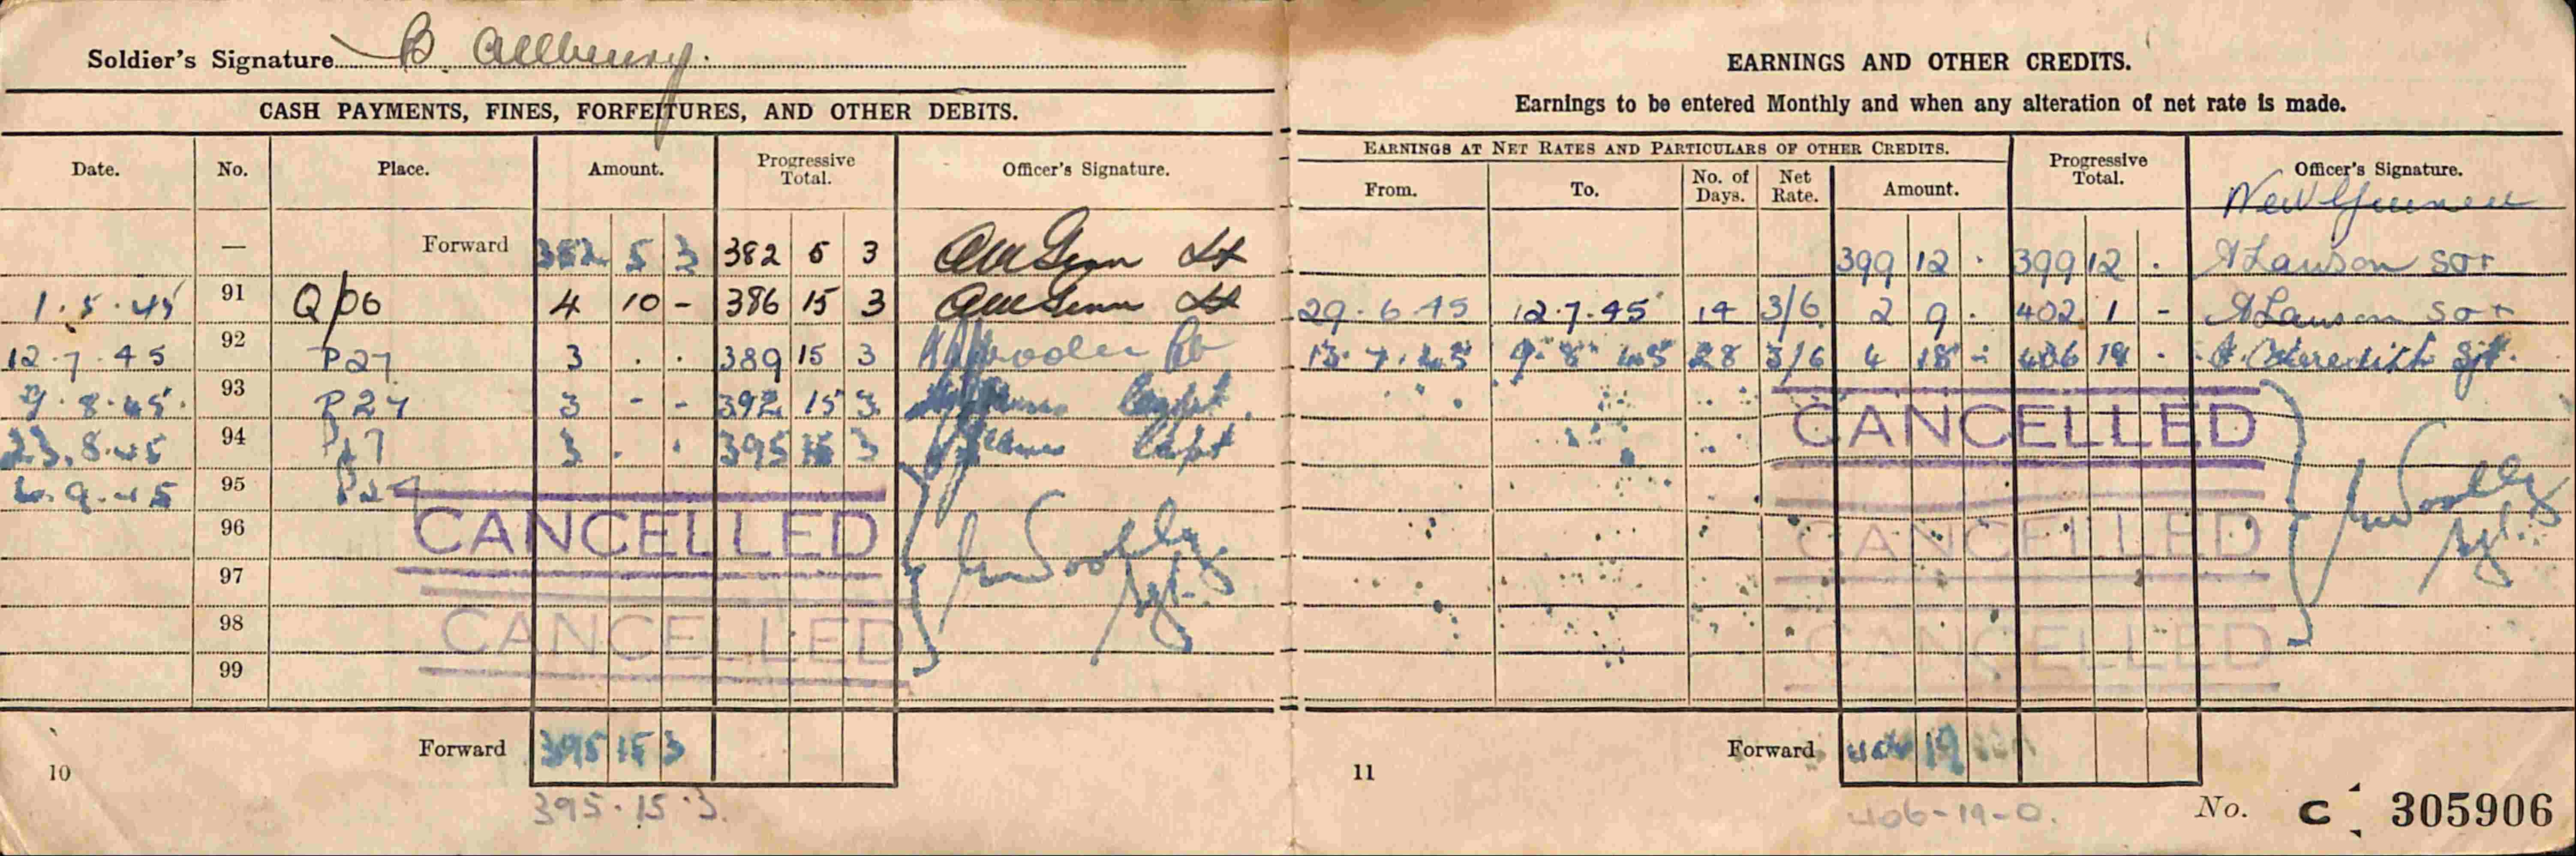 Soldier's Signature B. Allbury.
CASH PAYMENTS, FINES, FORFEITURES, AND OTHER DEBITS.
Date. No. Place. Amount. Progressive Total. Officer's Signature.
— Forward 382 5 3 382 5 3 Lt
1.5.45 91 Q/06 4 10 - 386 15 3 Lt
12.7.45 92 P27 3 . . 389 15 3
9.8.45. 93 P27 3 - - 392 15 3 Capt.
23.8.45 94 P27 3 . . 395 15 3 Capt
6.9.45 95 P27
CANCELLED
96
97
CANCELLED
98
99
Forward 395 15 3
10
395.15.3.
EARNINGS AND OTHER CREDITS.
Earnings to be entered Monthly and when any alteration of net rate is made.
EARNINGS AT NET RATES AND PARTICULARS OF OTHER CREDITS. Progressive Total. Officer's Signature.
From. To. No. of Days. Net Rate. Amount.
399 12 . 399 12 . A Lawson
29.6.45 12.7.45 14 3/6 2 9 . 402 1 - A Lawson
13.7.45 9.8.45 28 3/6 4 18 - 406 19 . Meredith Sjt.
CANCELLED
CANCELLED
CANCELLED
Forward 406 19
11
406-19-0.
No. C 305906